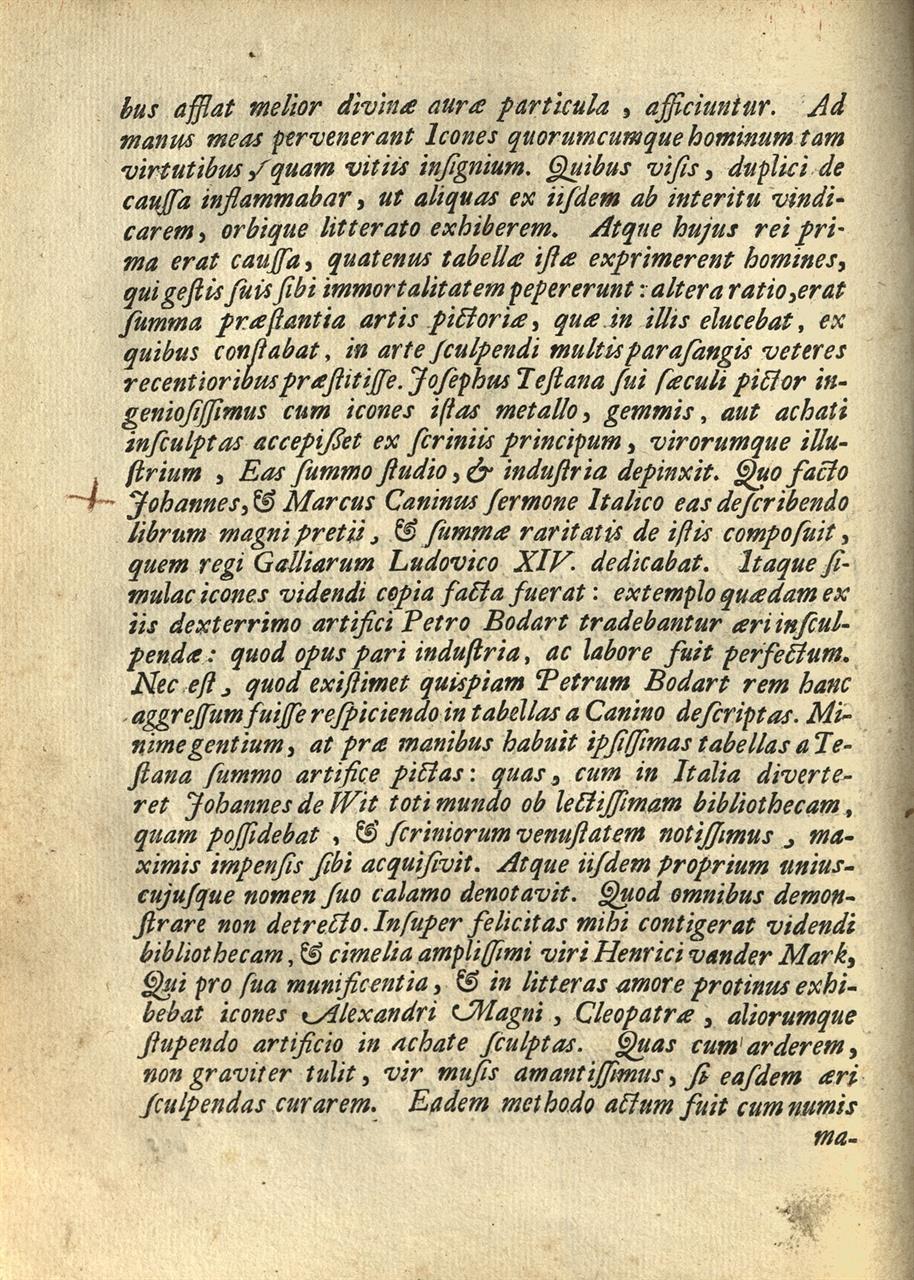 bus afflat melior divinæ auræ particula , afficiuntur. Ad
manus meas pervenerant Icones quorumcumque hominum tam
virtutibus, quam vitiis inſignium. Quibus viſis, duplici de
cauſſa inflammabar, ut aliquas ex iiſdem ab interitu vindi-
carem, orbique litterato exhiberem. Atque hujus rei pri-
ma erat cauſſa, quatenus tabellæ iſtæ exprimerent homines,
qui geſtis ſuis ſibi immortalitatem pepererunt : altera ratio, erat
ſumma præſtantia artis pictoriæ, quæ in illis elucebat, ex
quibus conſtabat, in arte ſculpendi multis paraſangis veteres
recentioribus præſtitiſſe. Joſephus Teſtana ſui ſæculi pictor in-
genioſiſſimus cum icones iſtas metallo, gemmis, aut achati
inſculptas accepiſſet ex ſcriniis principum, virorumque illu-
ſtrium , Eas ſummo ſtudio, & induſtria depinxit. Quo facto
Johannes, & Marcus Caninus ſermone Italico eas deſcribendo
librum magni pretii, & ſummæ raritatis de iſtis compoſuit,
quem regi Galliarum Ludovico XIV. dedicabat. Itaque ſi-
mulac icones videndi copia facta fuerat : extemplo quædam ex
iis dexterrimo artifici Petro Bodart tradebantur æri inſcul-
pendæ : quod opus pari induſtria, ac labore fuit perfectum.
Nec eſt, quod exiſtimet quispiam Petrum Bodart rem hanc
aggreſſum fuiſſe reſpiciendo in tabellas a Canino deſcriptas. Mi-
nime gentium, at præ manibus habuit ipſiſſimas tabellas a Te-
ſtana ſummo artifice pictas : quas, cum in Italia diverte-
ret Johannes de Wit toti mundo ob lectiſſimam bibliothecam,
quam poſſidebat , & ſcriniorum venuſtatem notiſſimus, ma-
ximis impenſis ſibi acquiſivit. Atque iiſdem proprium unius-
cujuſque nomen ſuo calamo denotavit. Quod omnibus demon-
ſtrare non detrecto. Inſuper felicitas mihi contigerat videndi
bibliothecam, & cimelia ampliſſimi viri Henrici vander Mark,
Qui pro ſua munificentia, & in litteras amore protinus exhi-
bebat icones Alexandri Magni , Cleopatræ , aliorumque
ſtupendo artificio in achate ſculptas. Quas cum arderem,
non graviter tulit, vir muſis amantiſſimus, ſi eaſdem æri
ſculpendas curarem. Eadem methodo actum fuit cum numis
ma-